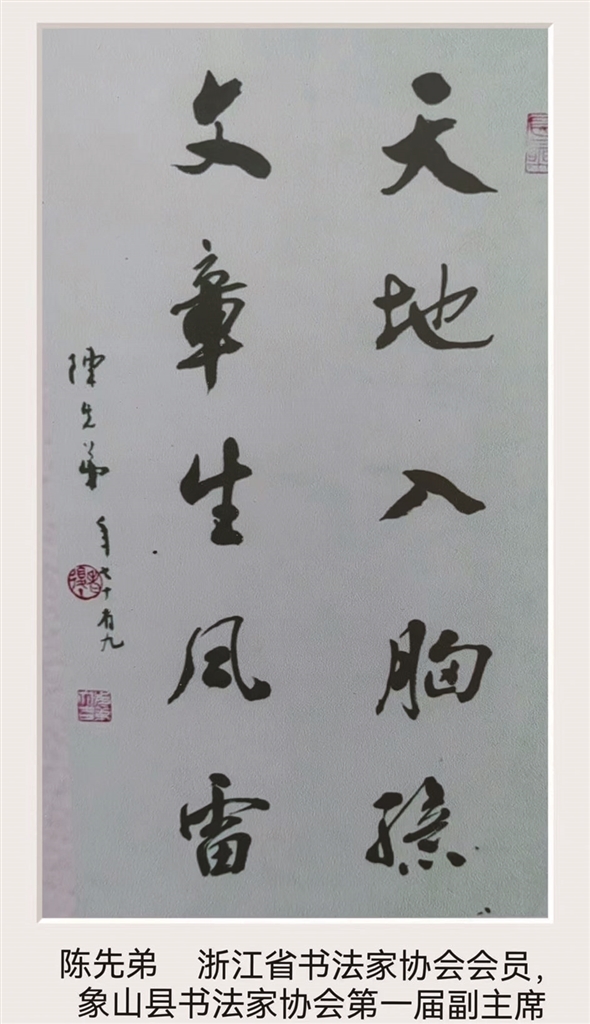 天地入胸臆
文章生风雷
陳先弟年七十有九
陈先弟 浙江省书法家协会会员，
象山县书法家协会第一届副主席